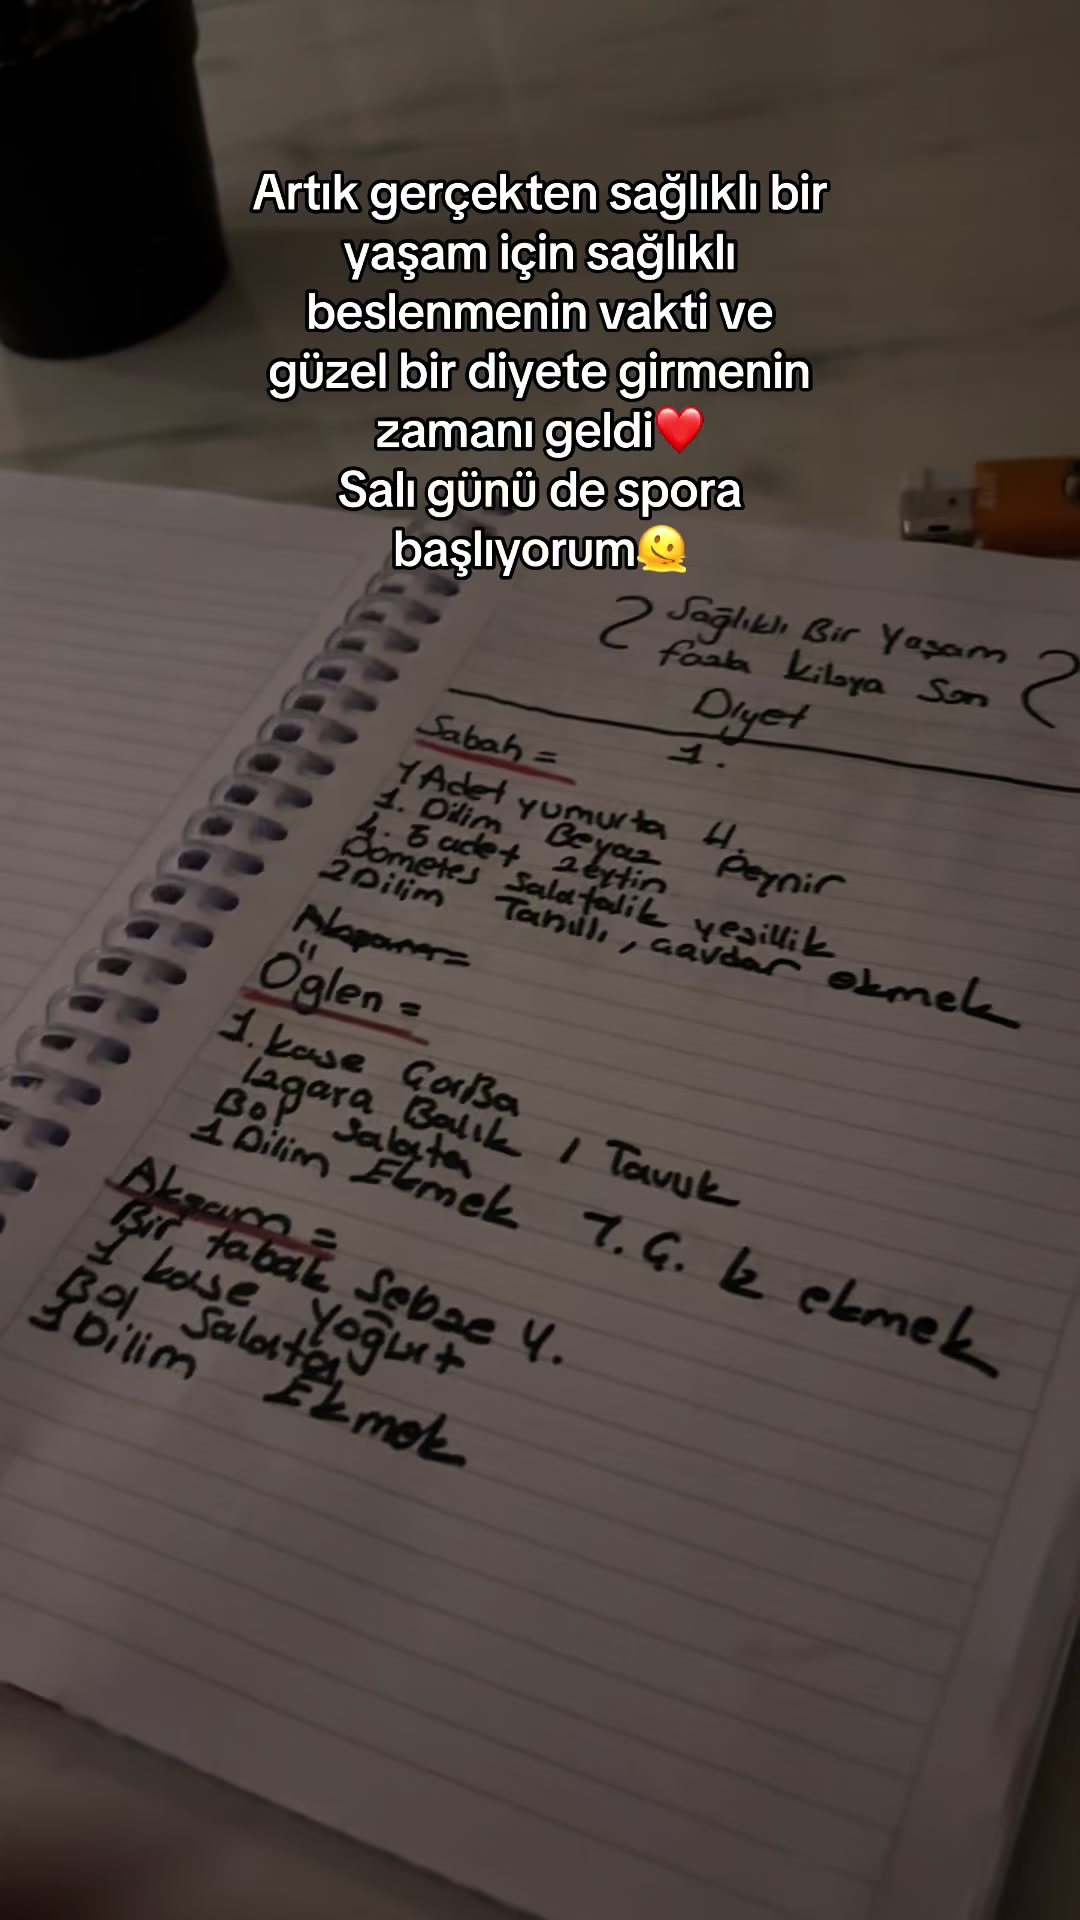 Artık gerçekten sağlıklı bir
yaşam için sağlıklı
beslenmenin vakti ve
güzel bir diyete girmenin
zamanı geldi❤️
Salı günü de spora
başlıyorum🫠
Sağlıklı Bir Yaşam
fazla kiloya Son
Diyet
1.
Sabah =
Adet yumurta H.
1. Dilim Beyaz Peynir
4. 5 adet zeytin
Domates Salatalik yeşillik
2 Dilim Tahıllı, çavdar ekmek
Öğlen =
1. kase ÇorBa
Izgara Balık / Tavuk
Bol Salata
1 Dilim Ekmek T. Ç. k ekmek
Akşam =
Bir tabak Sebze Y.
1 kase Yoğurt
Bol Salata
1 Dilim Ekmek